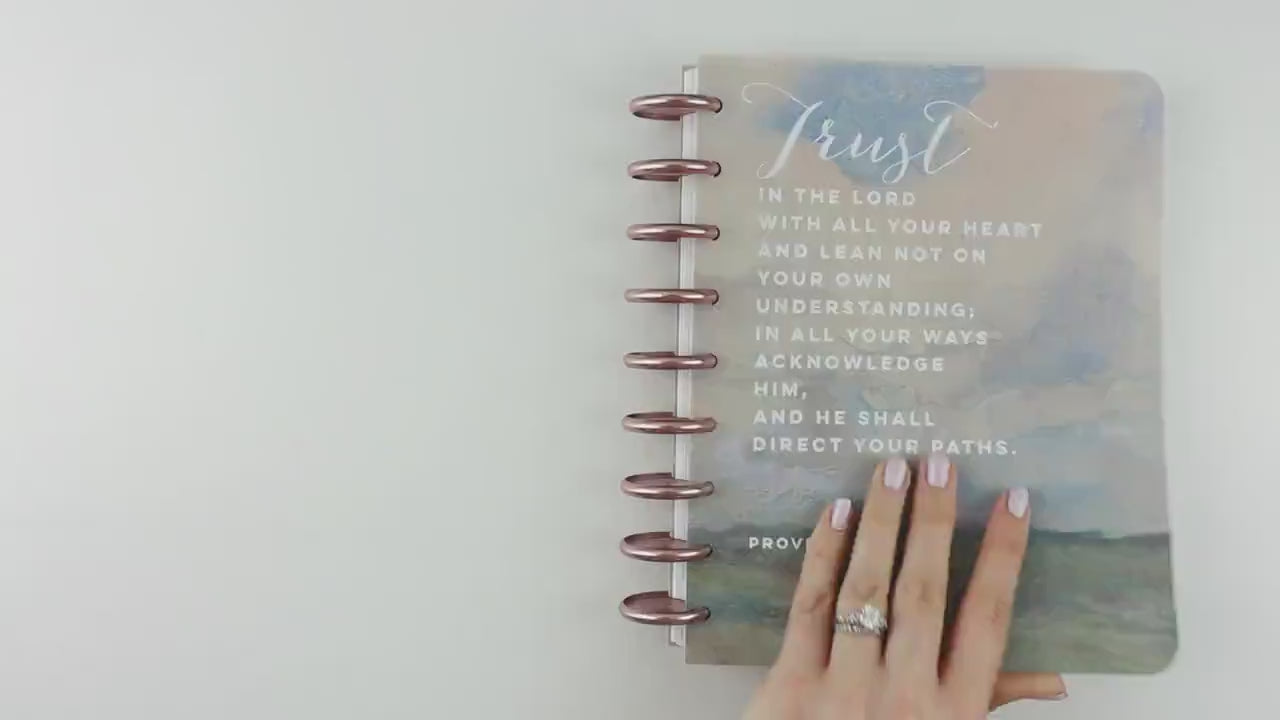 Trust
IN THE LORD
WITH ALL YOUR HEART
AND LEAN NOT ON
YOUR OWN
UNDERSTANDING;
IN ALL YOUR WAYS
ACKNOWLEDGE
HIM,
AND HE SHALL
DIRECT YOUR PATHS.